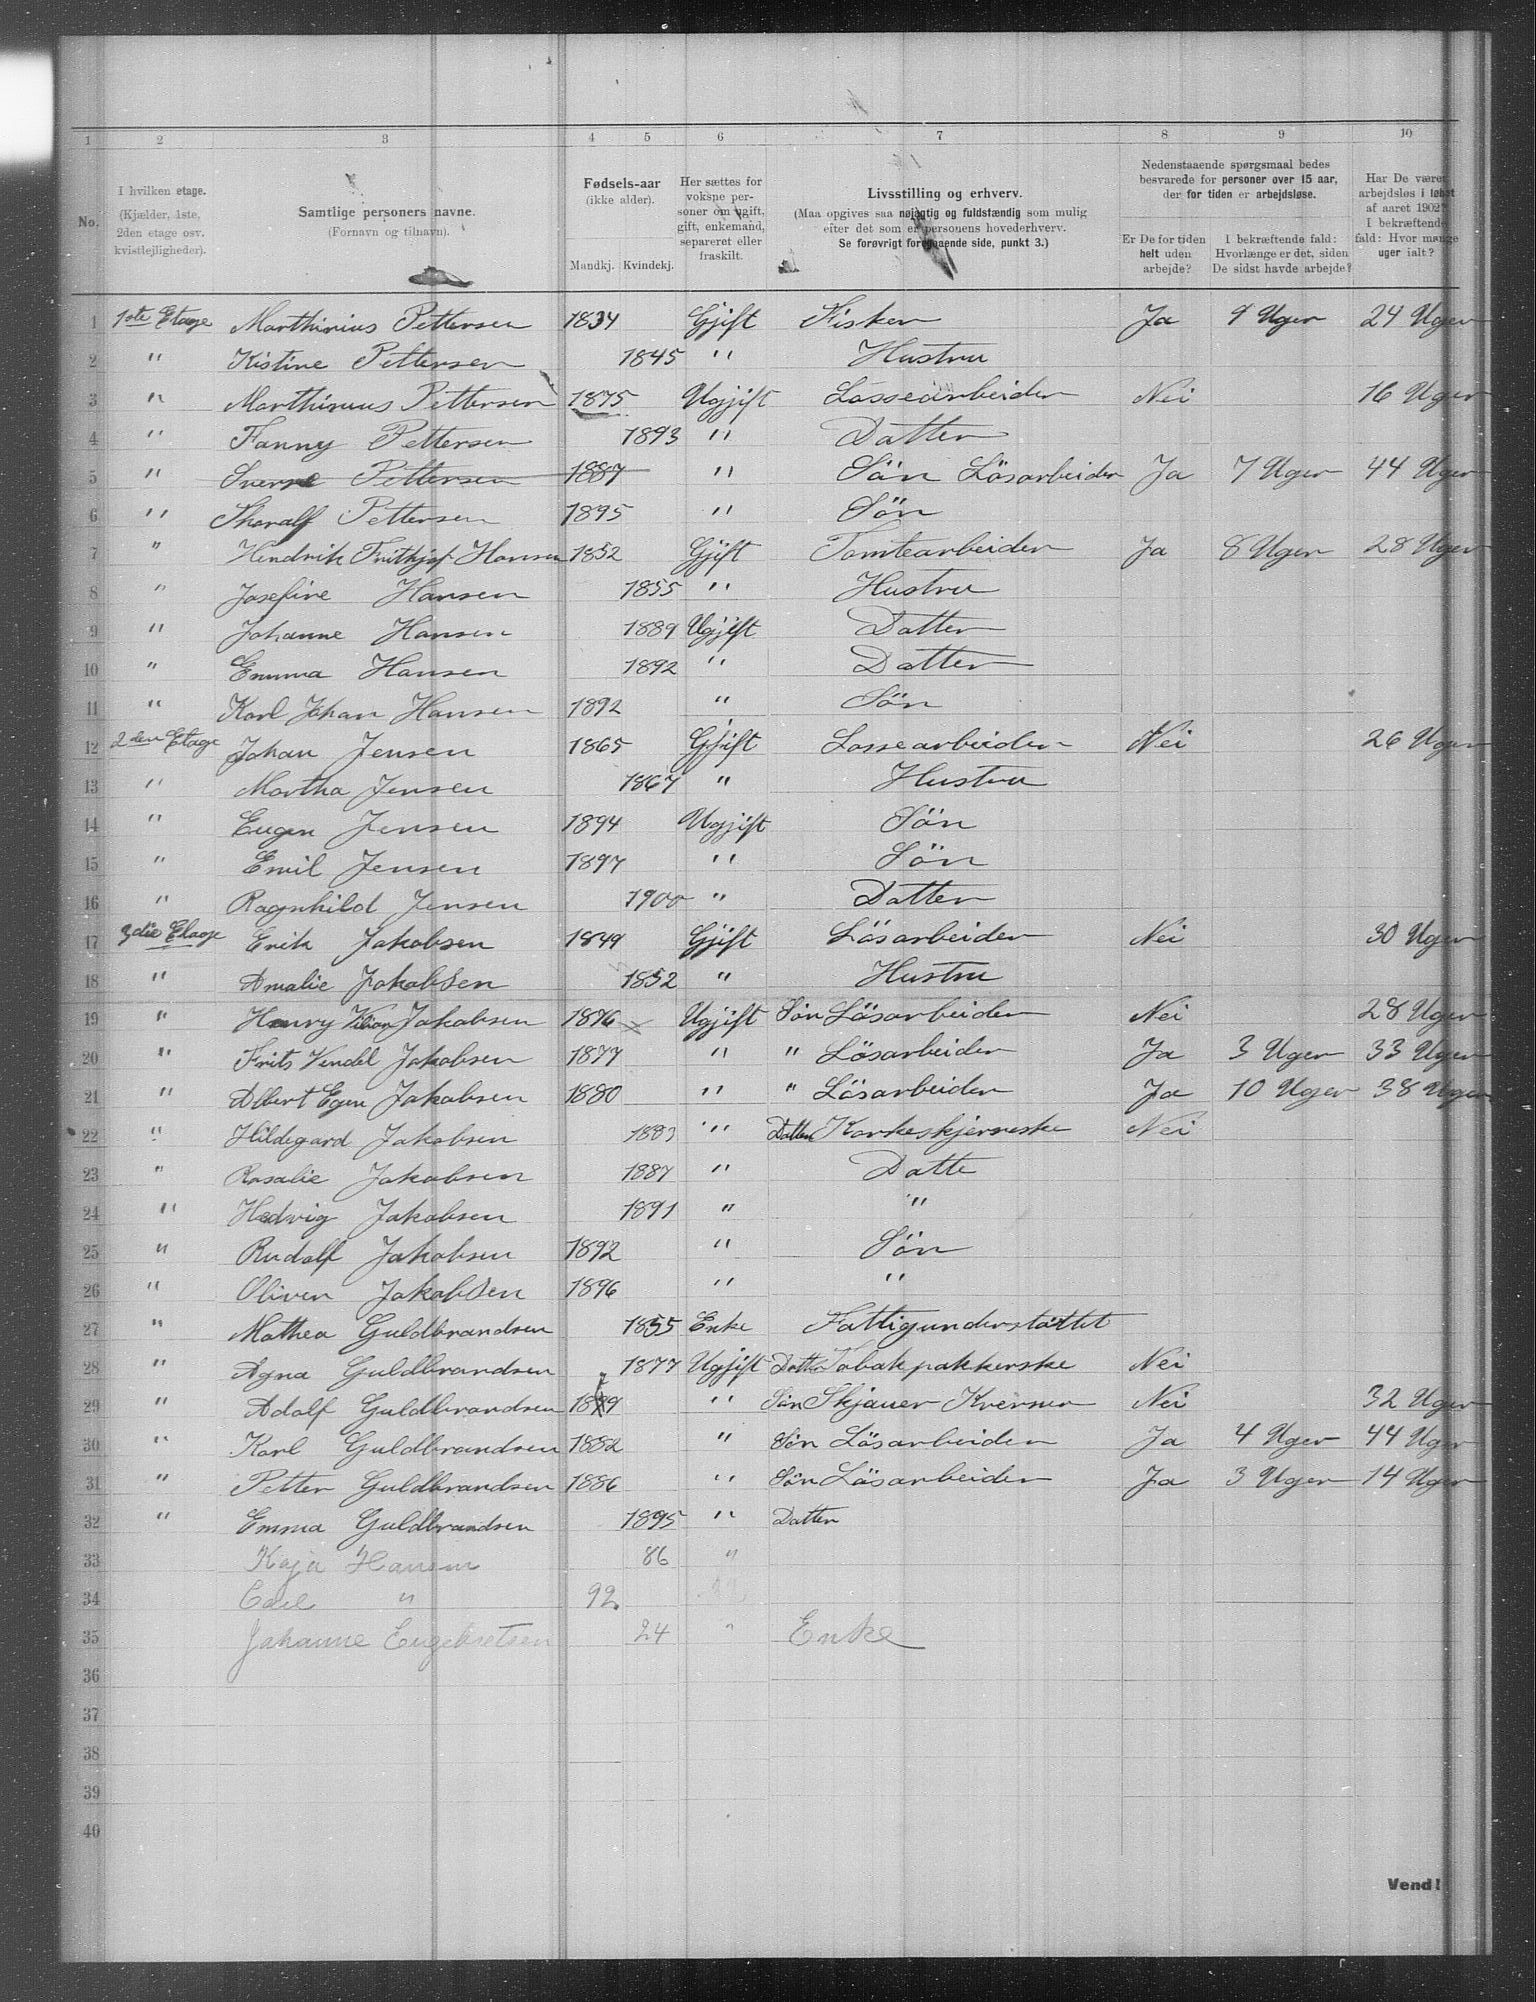 1 2 3 4 5 6 7 8 9 10
No.
I hvilken etage. (Kjælder, 1ste, 2den etage osv. kvistlejligheder).
Samtlige personers navne. (Fornavn og tilnavn).
Fødsels-aar (ikke alder). Mandkj. Kvindekj.
Her sættes for voksne personer om ugift, gift, enkemand, separeret eller fraskilt.
Livsstilling og erhverv. (Maa opgives saa nøjagtig og fuldstændig som mulig efter det som er personens hovederhverv. Se forøvrigt foregaaende side, punkt 3.)
Nedenstaaende spørgsmaal bedes besvarede for personer over 15 aar, der for tiden er arbejdsløse.
Er De for tiden helt uden arbejde?
I bekræftende fald: Hvorlænge er det, siden De sidst havde arbejde?
Har De været arbejdsløs i løbet af aaret 1902? I bekræftende fald: Hvor mange uger ialt?
1 1ste Etage Marthinius Pettersen 1834 Gjift Fisker Ja 9 Uger 24 Uger
2 " Kistine Pettersen 1845 " Hustru
3 " Marthinius Pettersen 1875 Ugjift Lossearbeider Nei 16 Uger
4 " Fanny Pettersen 1893 " Datter
5 " Sverre Pettersen 1887 " Sön Lösarbeider Ja 7 Uger 44 Uger
6 " Thoralf Pettersen 1895 " Sön
7 " Hendrik Frithjof Hansen 1852 Gjift Tomtearbeider Ja 8 Uger 28 Uger
8 " Josefine Hansen 1855 " Hustru
9 " Johanne Hansen 1889 Ugjift Datter
10 " Emma Hansen 1892 " Datter
11 " Karl Johan Hansen 1892 " Sön
12 2den Etage Johan Jensen 1865 Gjift Lossearbeider Nei 26 Uger
13 " Martha Jensen 1867 " Hustru
14 " Eugen Jensen 1894 Ugjift Sön
15 " Emil Jensen 1897 " Sön
16 " Ragnhild Jensen 1900 " Datter
17 3die Etage Erik Jakobsen 1849 Gjift Lösarbeider Nei 30 Uger
18 " Amalie Jakobsen 1852 " Hustru
19 " Henry Jakobsen 1876 Ugjift Sön Lösarbeider Nei 28 Uger
20 " Frits Vendel Jakobsen 1877 " " Lösarbeider Ja 3 Uger 33 Uger
21 " Albert Egen Jakobsen 1880 " " Lösarbeider Ja 10 Uger 38 Uger
22 " Hildegard Jakobsen 1883 " Datter Korkeskjerreske Nei
23 " Rosalie Jakobsen 1887 " Datte
24 " Hedvig Jakobsen 1891 " "
25 " Rudolf Jakobsen 1892 " Sön
26 " Oliver Jakobsen 1896 " "
27 " Mathea Guldbrandsen 1855 Enke Fattigunderstöttet
28 " Agna Guldbrandsen 1877 Ugjift Datter Tobakpakkerske Nei
29 " Adolf Guldbrandsen 1879 " Sön Skjauer Kverner Nei 32 Uger
30 " Karl Guldbrandsen 1882 " Sön Lösarbeider Ja 4 Uger 44 Uger
31 " Petter Guldbrandsen 1886 " Sön Lösarbeider Ja 3 Uger 14 Uger
32 " Emma Guldbrandsen 1895 " Datter
33 Kaja Hansen 86 "
34 Carl " 92
35 Johanne Engebretsen 24 " Enke
36
37
38
39
40
Vend!